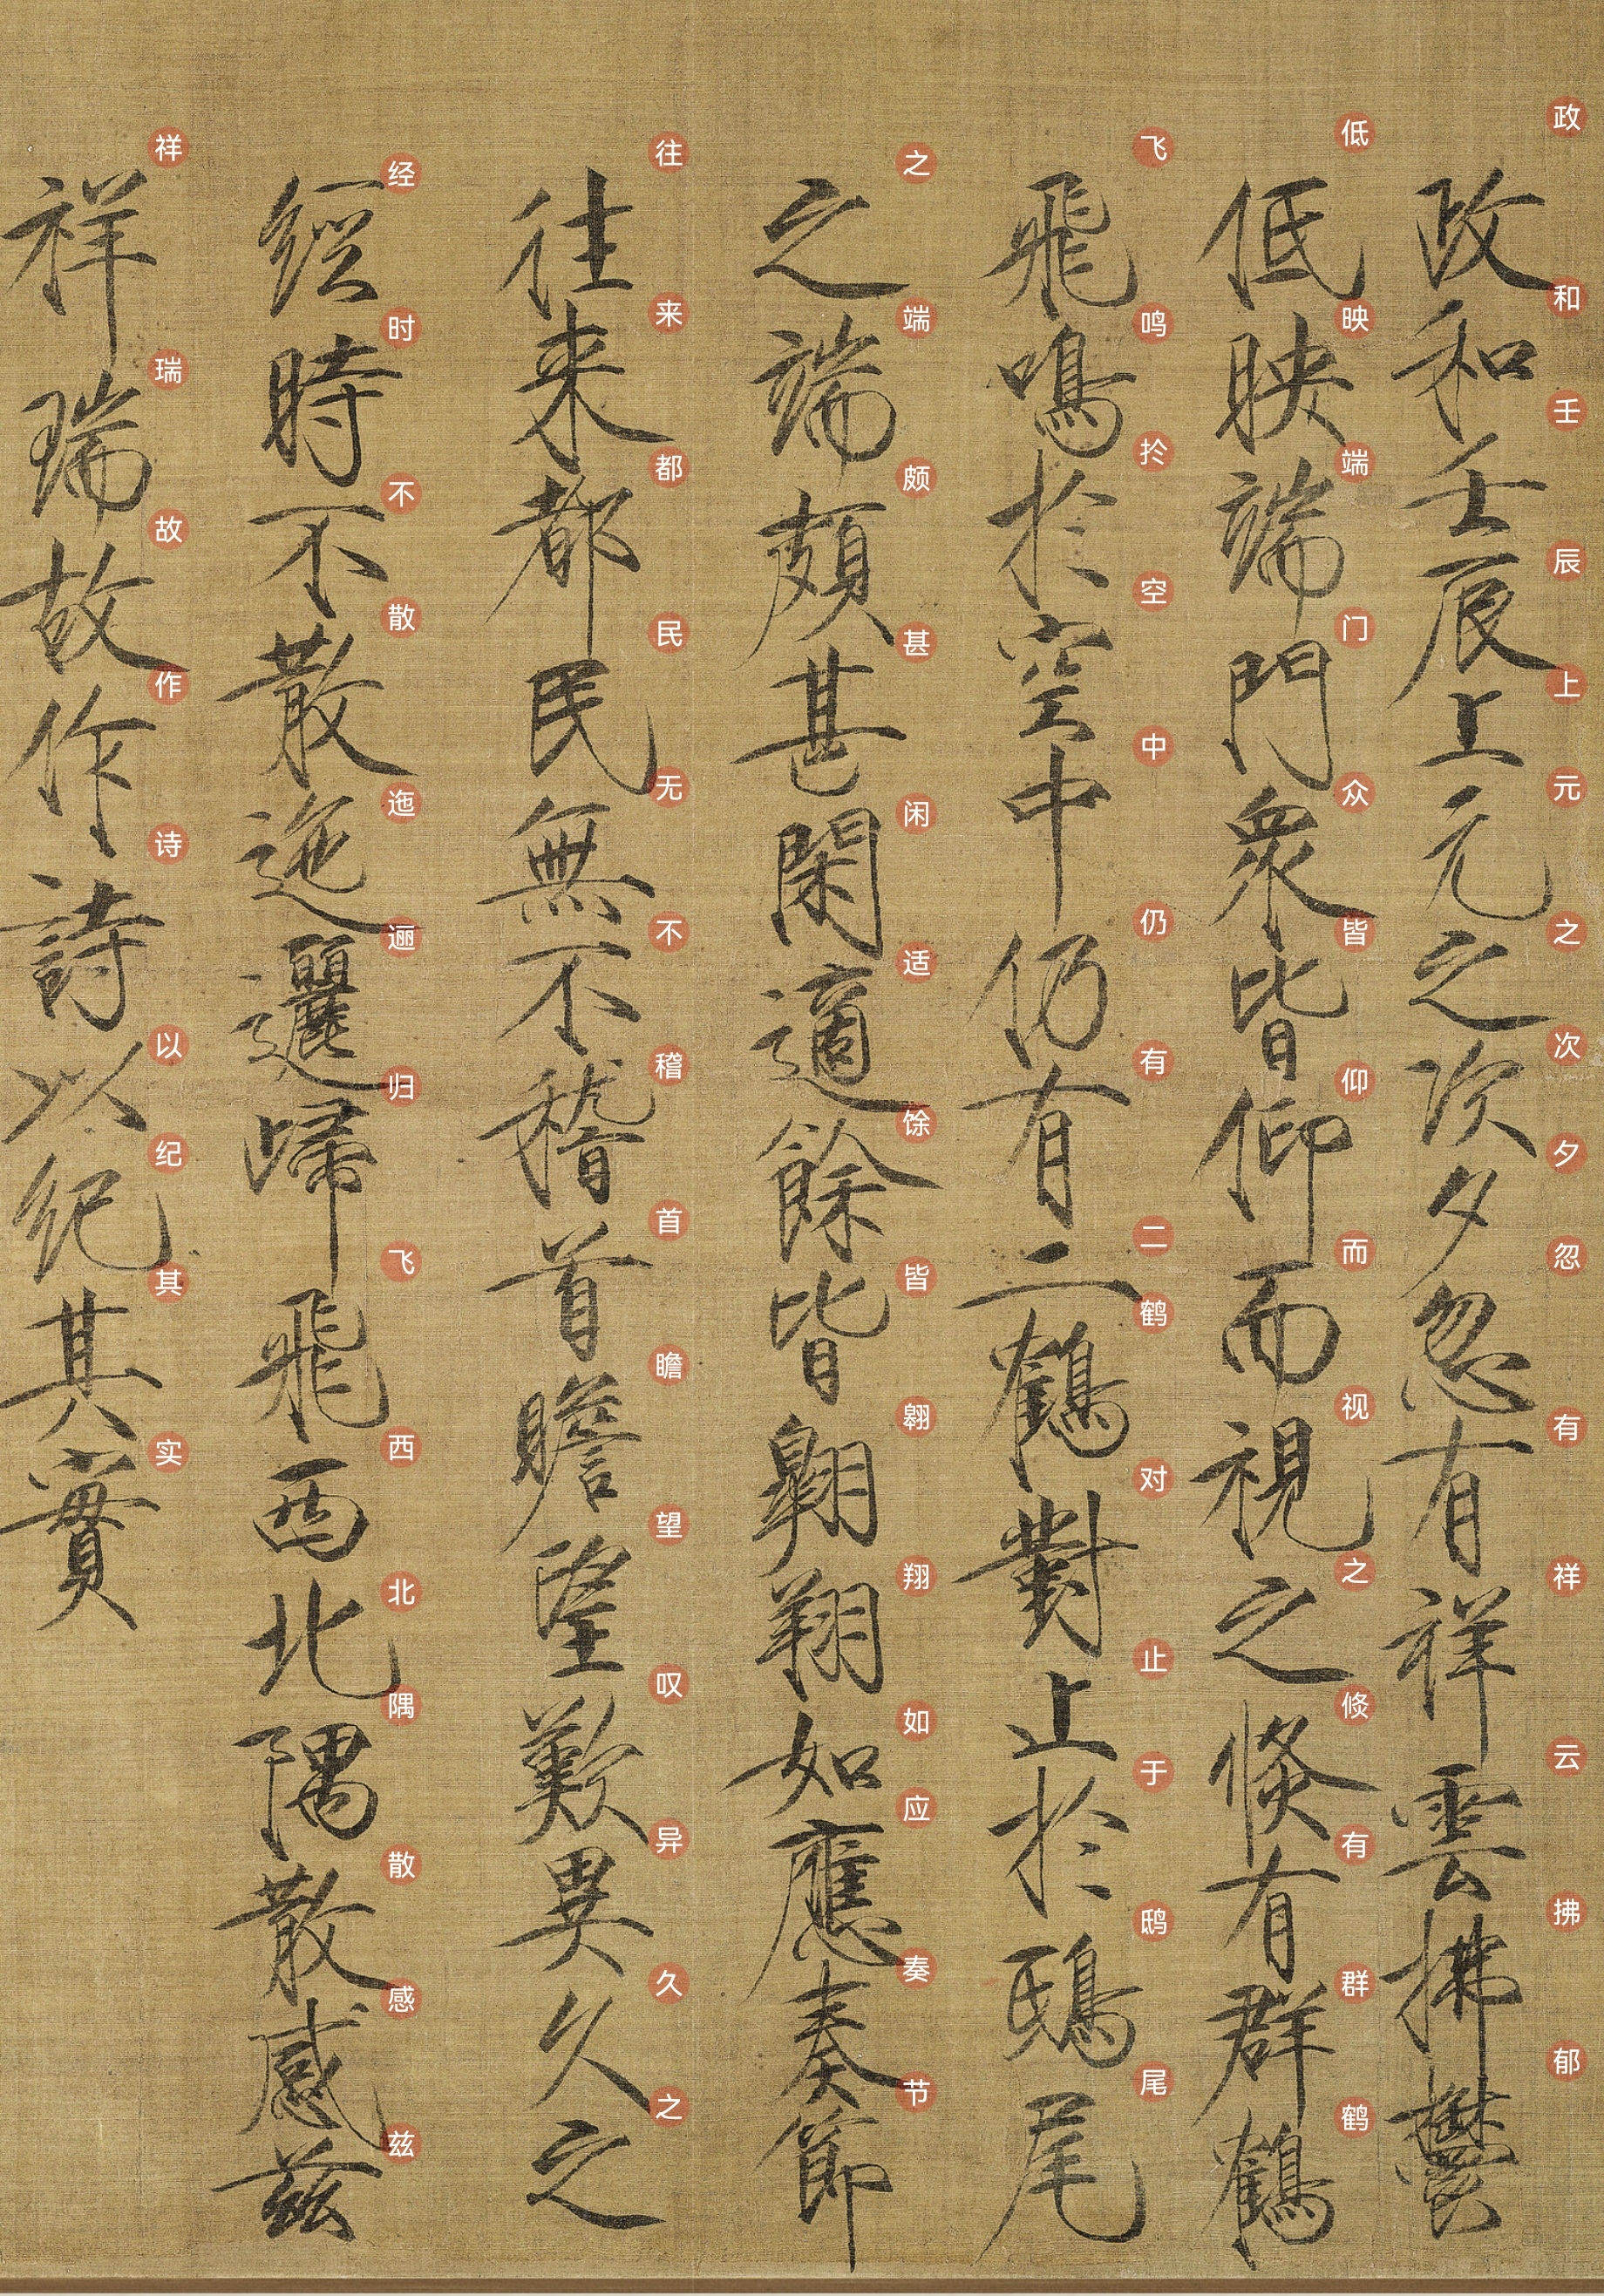 政和壬辰上元之次夕忽有祥云拂郁
政和壬辰上元之次夕忽有祥雲拂鬱
低映端门众皆仰而视之倏有群鹤
低映端門衆皆仰而視之倏有群鶴
飞鸣扵空中仍有二鹤对止于鸱尾
飛鳴扵空中仍有二鶴對止扵鴟尾
之端颇甚闲适馀皆翱翔如应奏节
之端頗甚閑適餘皆翱翔如應奏節
往来都民无不稽首瞻望叹异久之
往来都民無不稽首瞻望歎異久之
经时不散迤逦归飞西北隅散感兹
經時不散迤邐歸飛西北隅散感茲
祥瑞故作诗以纪其实
祥瑞故作詩以紀其實